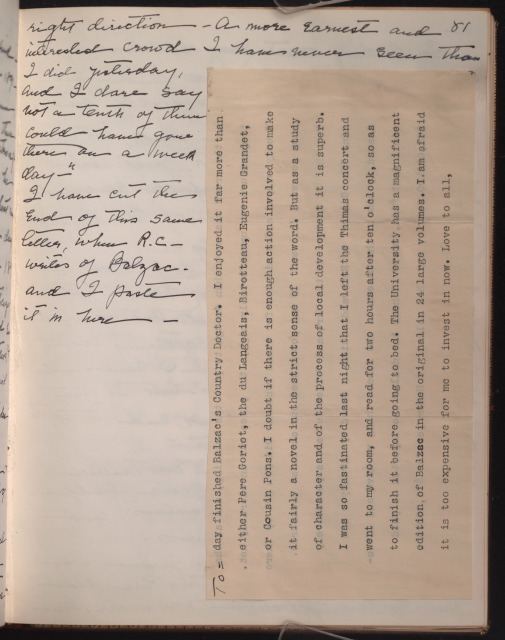 right direction - A more earnest and 81
interested crowd I have never seen than
I did yesterday,
and I dare say
not a tenth of them
could have gone
there on a week
day - "
I have cut the
End of this same
letter, when R.C -
writes of Balzac -
and I paste
it in here -
To = day finished Balzac's Country Doctor. I enjoyed it far more than
either Pere Goriot, the du Langeais, Birotteau, Eugenie Grandet,
or Cousin Pons. I doubt if there is enough action involved to make
it fairly a novel in the strict sense of the word. But as a study
of character and of the process of local development it is superb.
I was so fastinated last night that I left the Thimas concert and
went to my room, and read for two hours after ten o'clock, so as
to finish it before going to bed. The University has a magnificent
edition of Balzac in the original in 24 large volumes. I am afraid
it is too expensive for me to invest in now. Love to all,